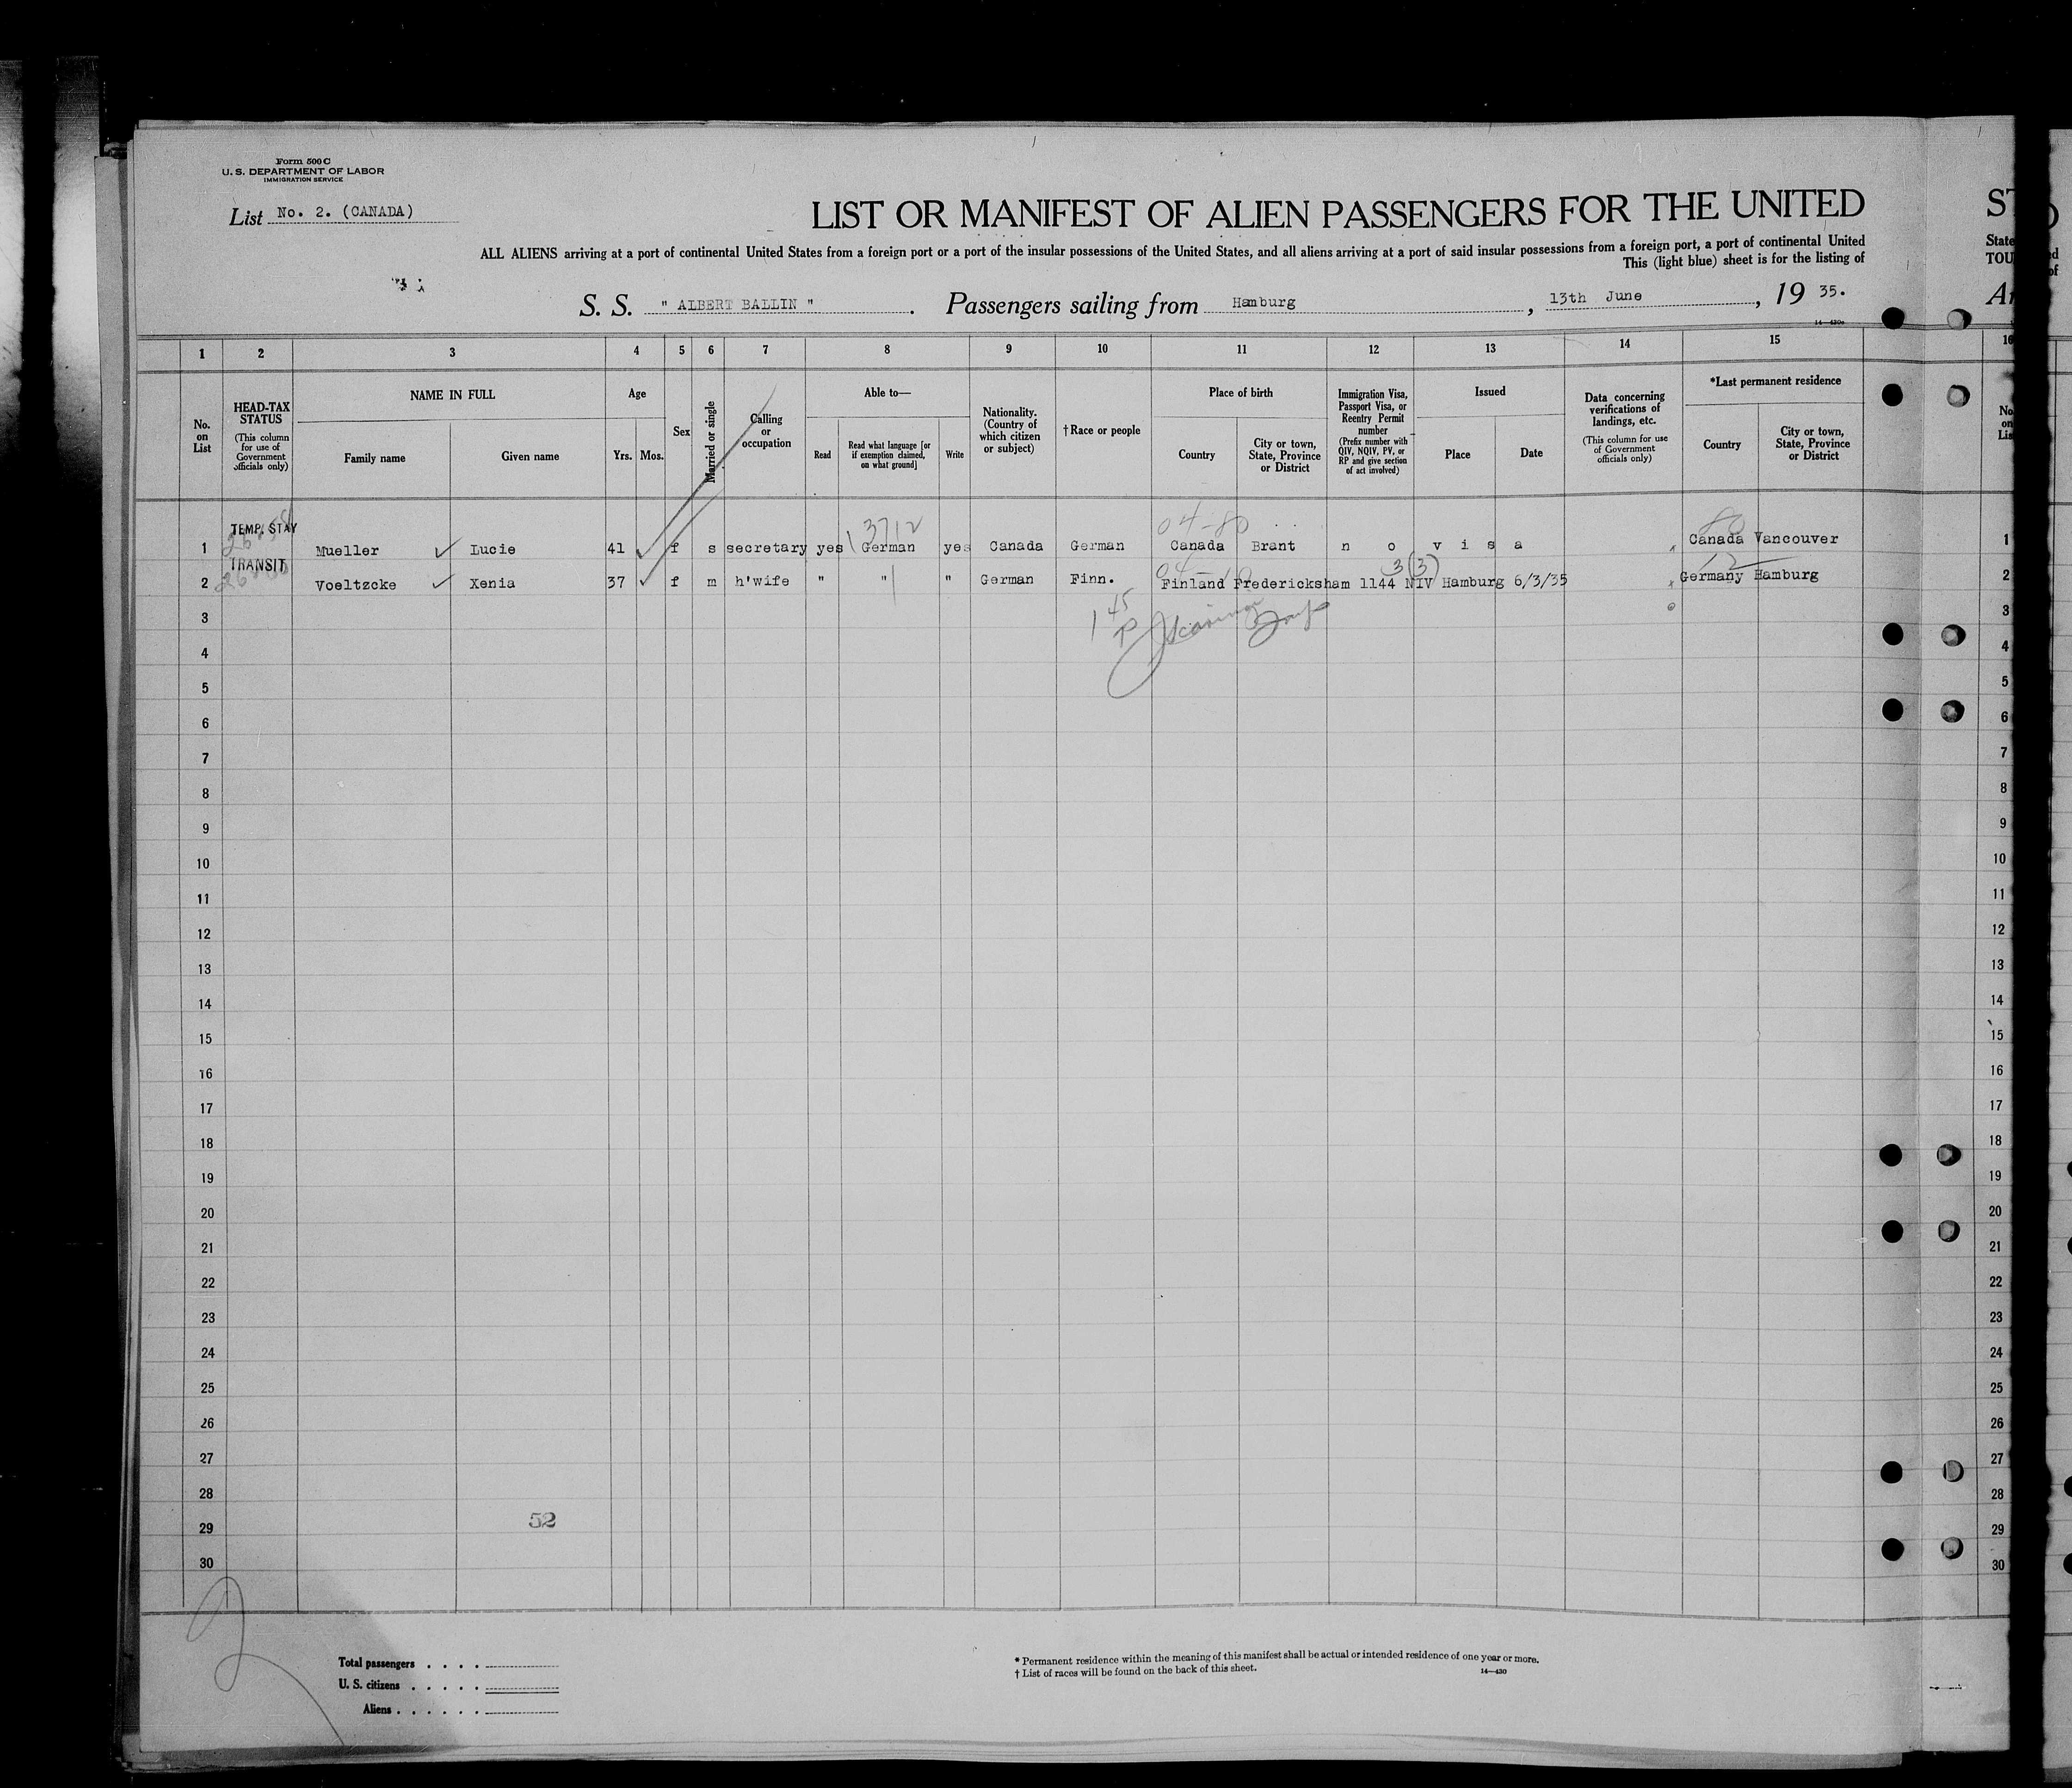 Form 500 C
U. S. DEPARTMENT OF LABOR
IMMIGRATION SERVICE
List No. 2. (CANADA)
LIST OR MANIFEST OF ALIEN PASSENGERS FOR THE UNITED
ST
ALL ALIENS arriving at a port of continental United States from a foreign port or a port of the insular possessions of the United States, and all aliens arriving at a port of said insular possessions from a foreign port, a port of continental United
State
This (light blue) sheet is for the listing of
TOU
S. S. " ALBERT BALLIN ". Passengers sailing from Hamburg, 13th June, 19 35.
1 2 3 4 5 6 7 8 9 10 11 12 13 14 15 16
No. on List
HEAD-TAX STATUS
(This column for use of Government officials only)
NAME IN FULL
Family name
Given name
Age
Yrs. Mos.
Sex
Married or single
Calling or occupation
Able to—
Read
Read what language [or if exemption claimed, on what ground]
Write
Nationality. (Country of which citizen or subject)
†Race or people
Place of birth
Country
City or town, State, Province or District
Immigration Visa, Passport Visa, or Reentry Permit number
(Prefix number with QIV, NQIV, PV, or RP and give section of act involved)
Issued
Place
Date
Data concerning verifications of landings, etc.
(This column for use of Government officials only)
*Last permanent residence
Country
City or town, State, Province or District
TEMP. STAY
3712
04-80
1 Mueller Lucie 41 f s secretary yes German yes Canada German Canada Brant n o v i s a Canada Vancouver 1
TRANSIT
3(3)
12
2 Voeltzcke Xenia 37 f m h'wife " " " German Finn. Finland Fredericksham 1144 NIV Hamburg 6/3/35 Germany Hamburg 2
3 3
4 4
5 5
6 6
7 7
8 8
9 9
10 10
11 11
12 12
13 13
14 14
15 15
16 16
17 17
18 18
19 19
20 20
21 21
22 22
23 23
24 24
25 25
26 26
27 27
28 28
52
29 29
30 30
2
Total passengers . . . .
U. S. citizens . . . . .
Aliens . . . . . .
* Permanent residence within the meaning of this manifest shall be actual or intended residence of one year or more.
† List of races will be found on the back of this sheet.
14—430